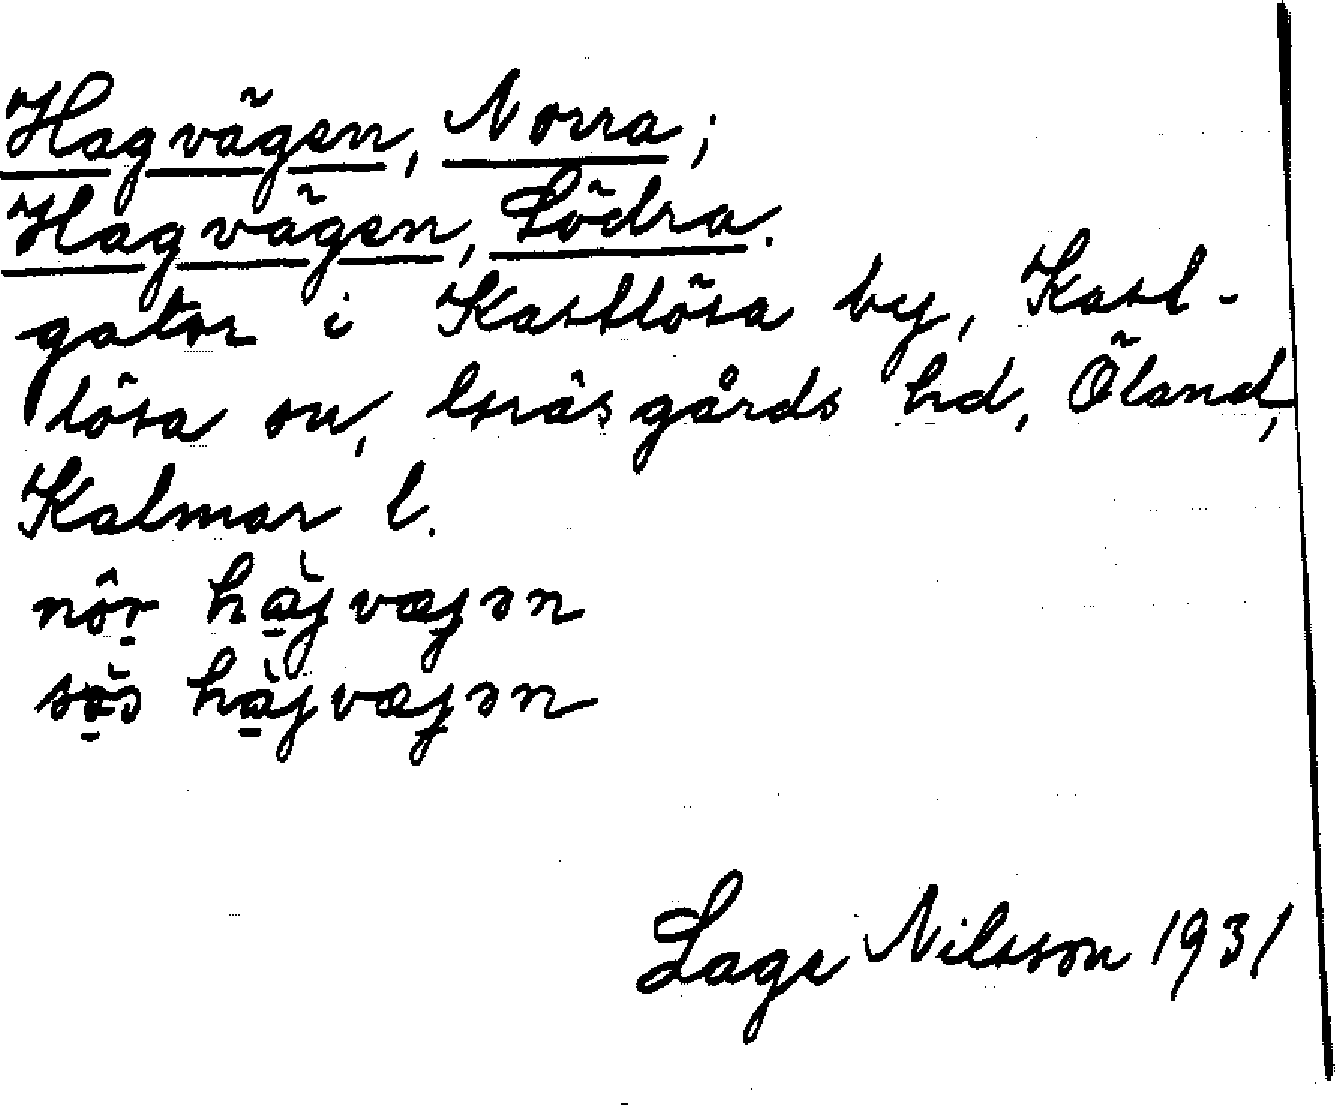 Hagvägen, Norra;
Hagvägen, Södra.
gator i Kastlösa by, Kast-
lösa sn, Gräsgårds hd, Öland,
Kalmar l.
nôr hàjvæjən
sø̀s hàjvæjən
Lage Nilsson 1931